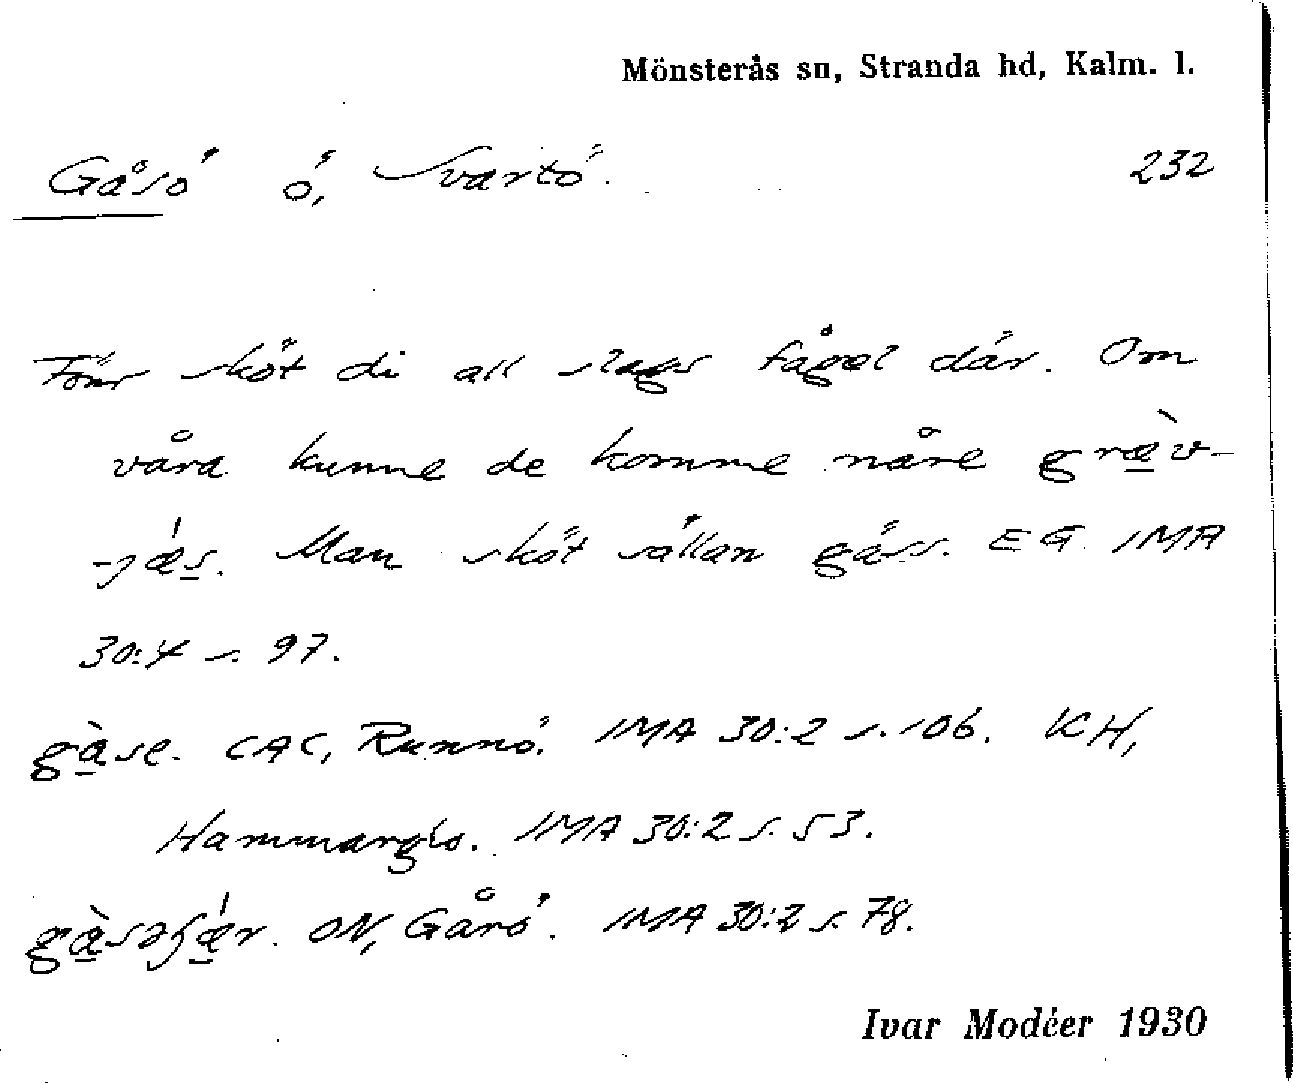 Mönsterås sn, Stranda hd, Kalm. l.
Gåsö ö, Svartö. 232
Förr sköt di all slags fågel där. Om
våra kunne de komme nåre græ̀v-
-jǽs. Man sköt sällan gäss. EG. IMA
30:4 s. 97.
gàse. CAC, Runnö. IMA 30:2 s. 106. KH,
Hammarglo. IMA 30:2 s. 53.
ON, Gårö. IMA 30:2 s. 78.
Ivar Modéer 1930